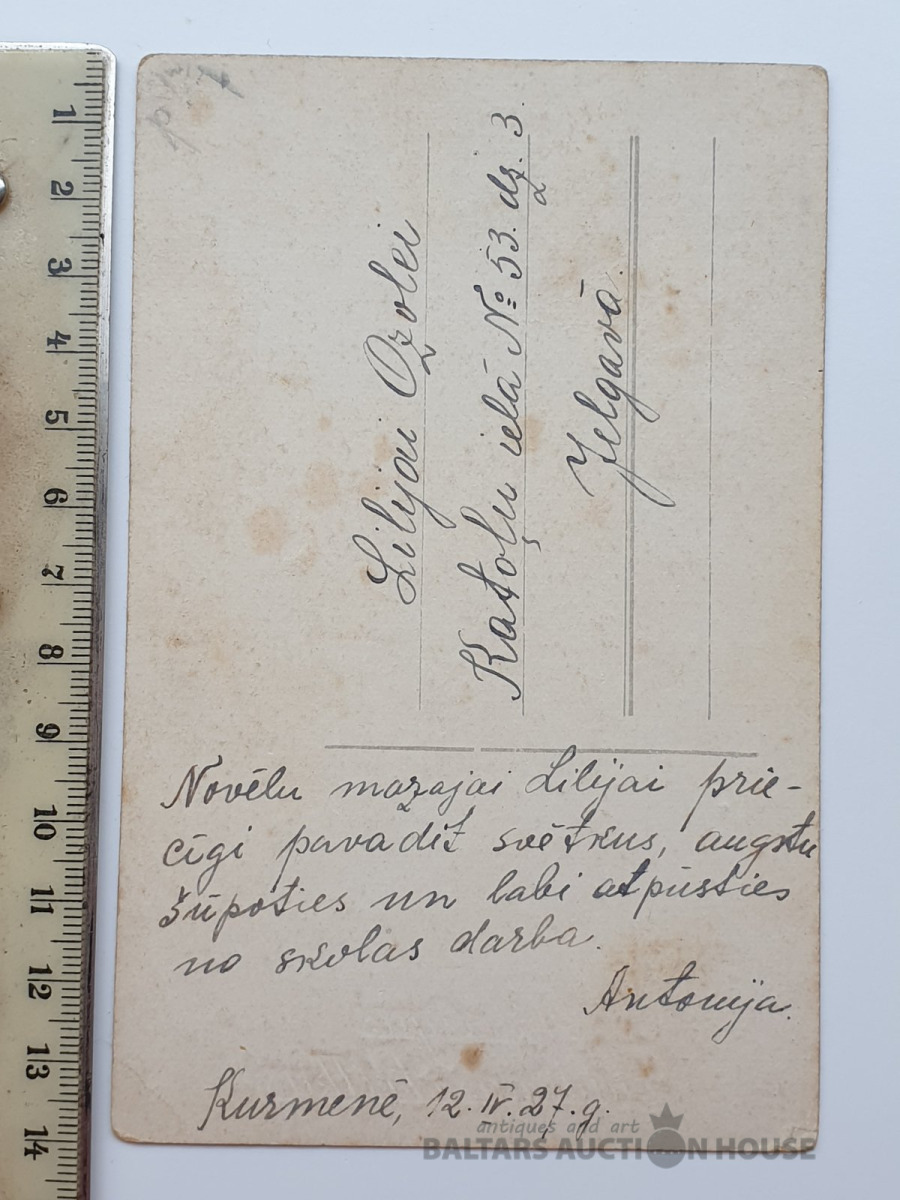 Lilijai Ozolei
Katoļu ielā № 53. dz. 3.
Jelgavā.
Novēlu mazajai Lilijai prie-
cīgi pavadīt svētkus, augstu
šūpoties un labi atpūsties
no skolas darba.
Antonija.
Kurmenē, 12.IV.27.g.
antiques and art
BALTARS AUCTION HOUSE
1
2
3
4
5
6
7
8
9
10
11
12
13
14